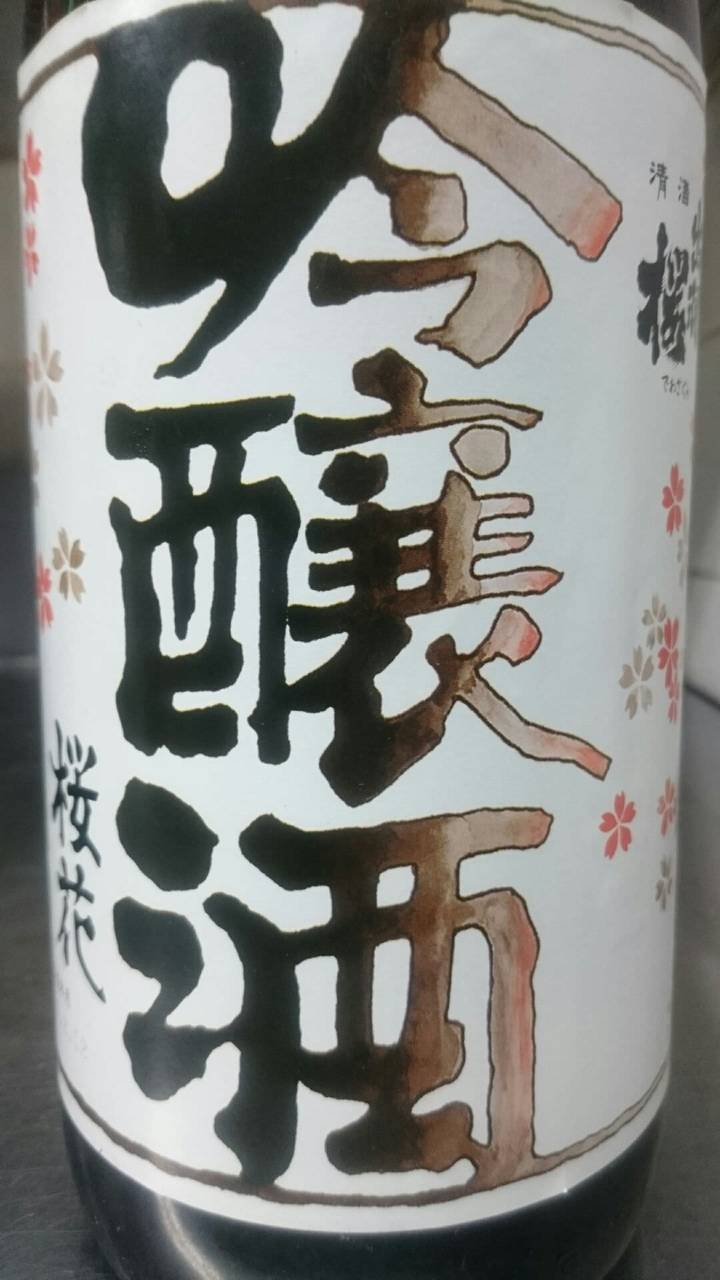 吟醸酒
清酒
桜
でわざくら
桜花